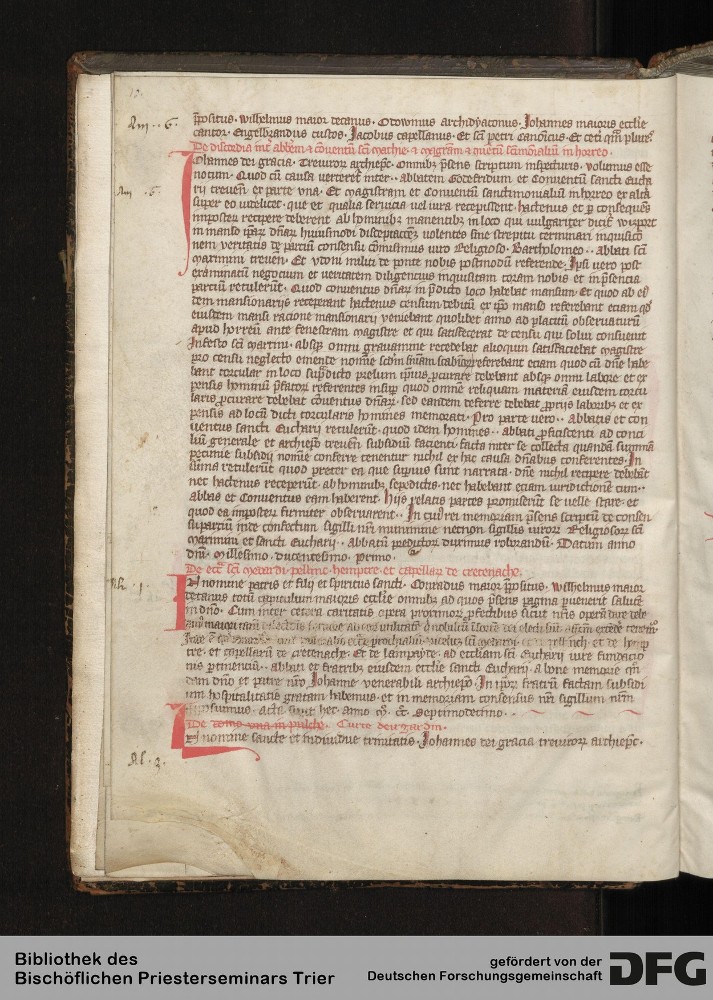 p̄positus . Wilhelmus maior decanus . Otowinus archidyaconus . Johannes maioris ecclie
Am . . 6 .
cantor . Engelbrandus custos . Jacobus capellanus . Et sc̄i petri canonicus . Et cet̄i
De discordia int̄ abb̄em & cōuentū sc̄i Mathie . & Magram & in horreo .
Johannes dei gracia . Treuiroꝝ archiep̄c . Omnibꝫ p̄sens scriptum inspecturis . volumus esse
notum . Quod cū causa verteret̄ inter . . abbatem Godefridum et Conuentū sancti Eucha
Am . 6 .
rij treueñ ex parte vna . Et Magistram et Conuentū sanctimonialiū in horreo ex altā
super eo videlicet . que et qualia seruicia vel iura recepissent hactenus et ꝑ consequēs
imposteꝝ recipere deberent ab hominibꝫ manentibꝫ in loco qui vulgariter dicit̄
in manso ip̄aꝝ dn̄aꝝ huiusmodi disceptacōeꝫ volentes sine strepitu terminari inquisicō
nem veritatis de parciū consensu cōmisimus viro Religioso . Bartholomeo . . abbati sc̄i
Maximini treueñ . Et vdoni militi de ponte nobis postmodū referende . Ipsi vero post
examinatū negocium et veritatem diligencius inquisitam coram nobis et in p̄sencia
parciū retulerūt . Quod conuentus dn̄aꝝ in p̄dicto loco habebat mansum . Et quod ab eis
dem mansionarijs receperant hactenus censum debitū ex ip̄o manso referebant eciam qd̓
eiusdem mansi racione mansionarij veniebant quolibet anno ad placitū obseruaturū
apud horreū ante fenestram magistre et qui satisfecerat de censu qui solui consueuit
In festo sc̄i Martini . absqꝫ omni grauamine recedebat alioquin satisfaciebat magistre
pro censu neglecto emende nomine referebant eciam quod cū dn̄e habe
bant torcular in loco sup̄dicto prelum ꝓcurare debebant absqꝫ omni labore et ex
pensis hominū p̄fatoꝝ referentes insuꝑ quod omnē reliquam materiā eiusdem torcu
laris ꝓcurare debebat cōuentus dn̄aꝝ . sed eandem deferre debebāt ꝓprijs laboribꝫ et ex
pensis ad locū dicti torcularis homines memorati . Pro parte vero . . abbatis et con
uentus sancti Eucharij retulerūt . quod idem homines . . abbati ꝓficiscenti ad conci
liū generale et archiep̄o treueñ subsidiū facienti . facta inter se collecta quandā summā
peccunie subsidij nomine conferre tenentur nichil ex hac causa dn̄abus conferentes . In
suma retulerūt quod preter ea que superius sunt narrata . dn̄e nichil recipere debebāt
nec hactenus receperūt . ab hominibꝫ sepedictis . nec habebant eciam iuridictionē cum . .
abbas et Conuentus eam haberent . Hijs relatis partes promiserūt se velle stare . et
quod ea imposteꝝ firmiter obseruarent . . In cuiꝰ rei memoriam p̄sens scriptū de consen
su parciū inde confectum sigilli nr̄i munimine necnon sigillis viroꝝ Religiosoꝝ sc̄i
Maximini et sancti Eucharij . . abbatū predictoꝝ duximus roborandū . Datum anno
dn̄i . Millesimo . ducentesimo . primo .
De ecc̄a sc̄i Medardi . pellinc . hemptre . et capellaꝝ de cretenache .
Al . 1 .
In nomine patris et filij et spiritus sancti . Conradus maior p̄positus . Wilhelmus maior
decanus totū capitulum maioris ecclie omnibꝫ ad quos p̄sens pagina ꝑuenerit salutē
in dn̄o . Cum inter cetera caritatis opera proximoꝝ ꝓfectibus sicut nr̄is opera dare
sc̄i Medardi
tre . et capellaꝝ de cretenache . Et de lampayde . ad eccliam sc̄i Eucharij iure fundacio
nis ꝑtinenciū . . abbati et fratribꝫ eiusdem ecclie sancti Eucharij . a bone memorie
dam dn̄o et patre nr̄o Johanne venerabili archiep̄o . In ip̄oꝝ fratrū factam subsidi
um hospitalitatis gratam habemus . et in memoriam consensus nr̄i sigillum nr̄m
apposuimus . acta sunt hec . anno Mͦ . CCͦ . Septimodecimo . .
De domo vna in . Curte
Al . 2 .
In nomine sancte et indiuidue trinitatis . Johannes dei gracia treuiroꝝ archiep̄c .
Bibliothek des
Bischöflichen Priesterseminars Trier
gefördert von der
Deutschen Forschungsgemeinschaft
DFG